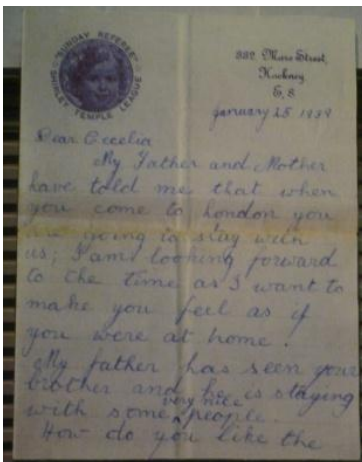 "SUNDAY REFEREE"
SHIRLEY TEMPLE LEAGUE
332 Mare Street,
Hackney
E. 8
January 25 1939
Dear Cecelia
My Father and Mother
have told me that when
you come to London you
are going to stay with
us; I am looking forward
to the time as I want to
make you feel as if
you were at home.
My father has seen your
brother and he is staying
with some very nice people.
How do you like the